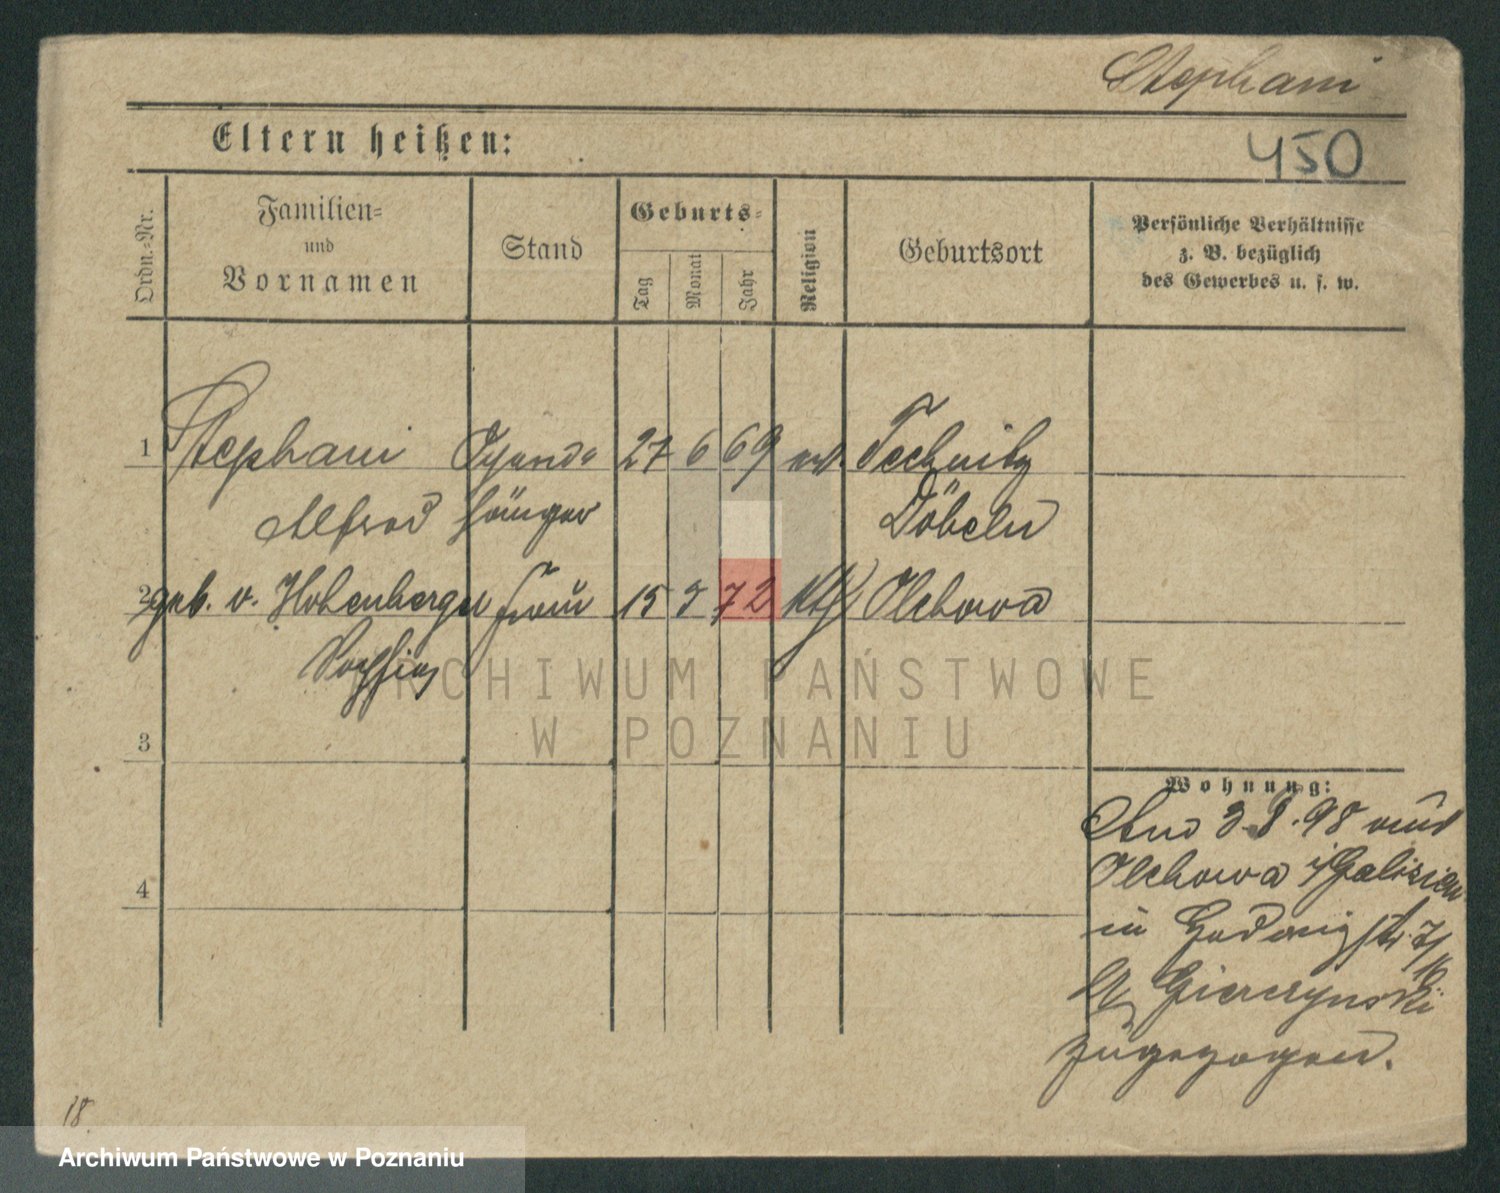 Stephani
Eltern heißen:
450
Ordn.-Nr.
Familien-
und
Vornamen
Stand
Geburts-
Tag
Monat
Jahr
Religion
Geburtsort
Persönliche Verhältnisse
z. B. bezüglich
des Gewerbes u. s. w.
1 Stephani 27 6 69 ev. Technitz
Alfred sänger Döbeln
2 geb. v. Hohenberger Frau 15 72 kth Olchowa
Sophie
ARCHIWUM PAŃSTWOWE
W POZNANIU
3
Wohnung:
Am 3.8.98 aus
Olchowa i/Galizien
4
in str. 7/
Gierczynski
zugezogen.
18.
Archiwum Państwowe w Poznaniu